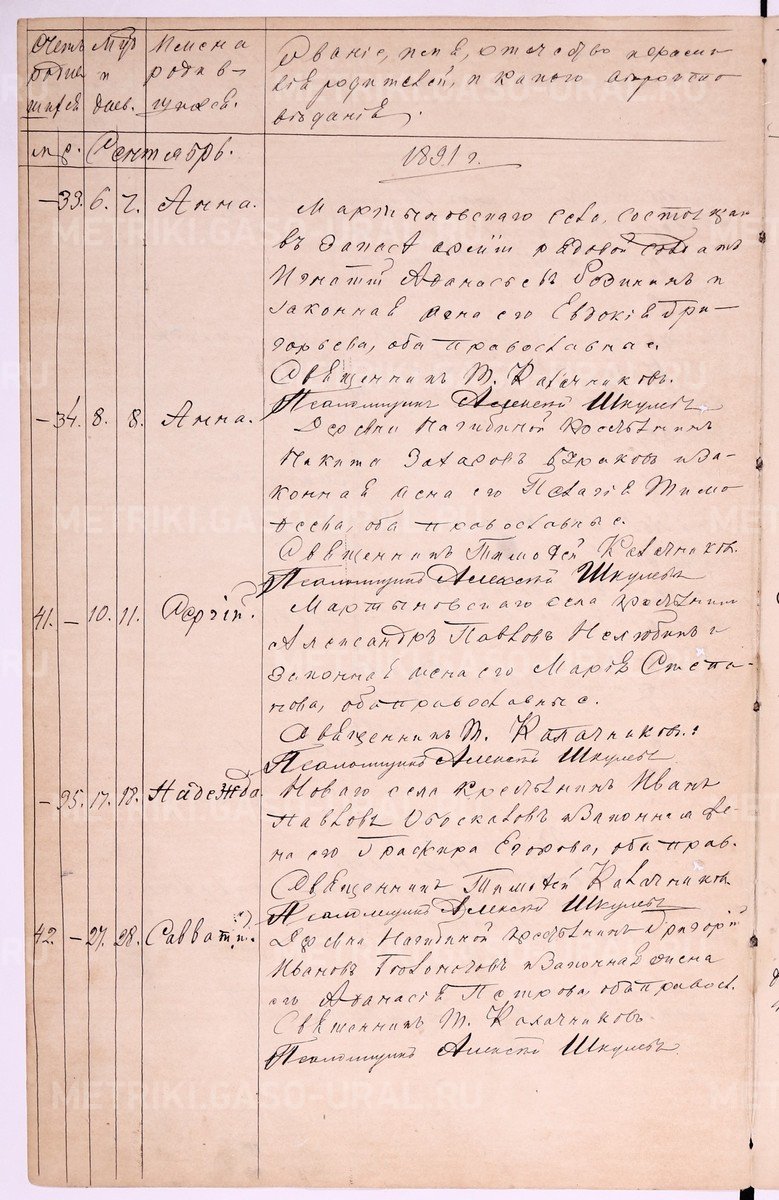 Счетъ Мѣс. Имена Званіе, имя, отечество и фами-
родив- и родив- лія родителей, и какого вѣроиспо-
шихся дней. шихся. вѣданія.
м. ж. Сентябрь. 1891 г.
— 33. 6. 7. Анна. Мартыновскаго села, состоящаг
въ запасѣ арміи рядовой солдатъ
Игнатій Аѳанасьевъ Родинъ и
законная жена его Евдокія Гри-
горьева, оба православные.
Священникъ Т. Калачниковъ.
Псаломщикъ Алексѣй Шкулевъ
— 34. 8. 8. Анна. Деревни Нагибиной крестьянинъ
Никита Захаровъ и за-
конная жена его Пелагія Тимо-
ѳеева, оба православные.
Священникъ Тимофей Калачниковъ.
Псаломщикъ Алексѣй Шкулевъ
41. — 10. 11. Сергій. Мартыновскаго села крестьянинъ
Александръ Павловъ Нелюбинъ и
законная жена его Марія Степа-
нова, оба православные.
Священникъ Т. Калачниковъ.
Псаломщикъ Алексѣй Шкулевъ
— 35. 17. 18. Надежда. Новаго села крестьянинъ Иванъ
Павловъ Обоскаловъ и законная же-
на его Глафира Егорова, оба прав.
Священникъ Тимофей Калачниковъ.
Псаломщикъ Алексѣй Шкулевъ
42. — 27. 28. Савватій. Деревни Нагибиной крестьянинъ Григорій
Ивановъ и законная жена
его Аѳанасія Петрова оба правосл.
Священникъ Т. Калачниковъ
Псаломщикъ Алексѣй Шкулевъ
METRIKI.GASO-URAL.RU